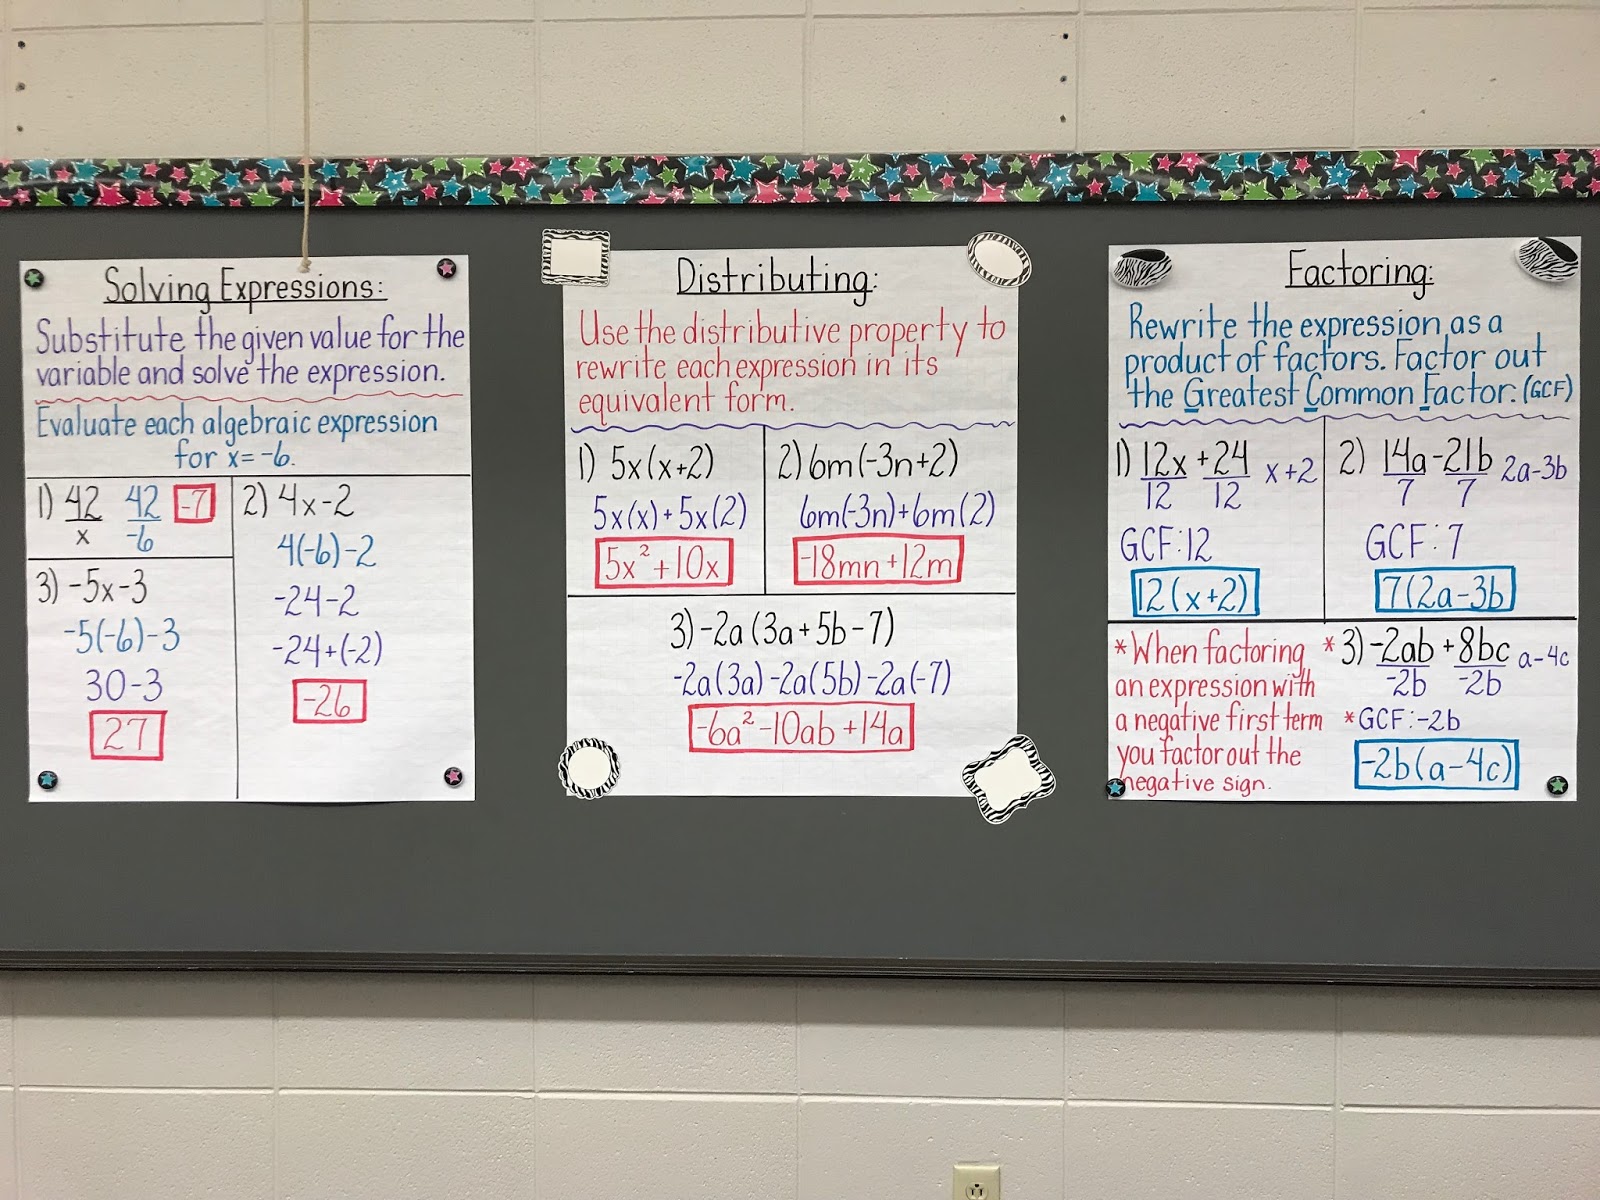 Solving Expressions:
Substitute the given value for the
variable and solve the expression.
Evaluate each algebraic expression
for x=-6.
1) 42/x 42/-6 -7
2) 4x-2
4(-6)-2
-24-2
-24+(-2)
-26
3) -5x-3
-5(-6)-3
30-3
27
Distributing:
Use the distributive property to
rewrite each expression in its
equivalent form.
1) 5x(x+2)
5x(x)+5x(2)
5x²+10x
2) 6m(-3n+2)
6m(-3n)+6m(2)
-18mn+12m
3) -2a(3a+5b-7)
-2a(3a)-2a(5b)-2a(-7)
-6a²-10ab+14a
Factoring:
Rewrite the expression as a
product of factors. Factor out
the Greatest Common Factor. (GCF)
1) 12x/12 + 24/12 x+2
GCF:12
12(x+2)
2) 14a/7 - 21b/7 2a-3b
GCF:7
7(2a-3b
*When factoring
an expression with
a negative first term
you factor out the
negative sign.
*3) -2ab/-2b + 8bc/-2b a-4c
*GCF:-2b
-2b(a-4c)